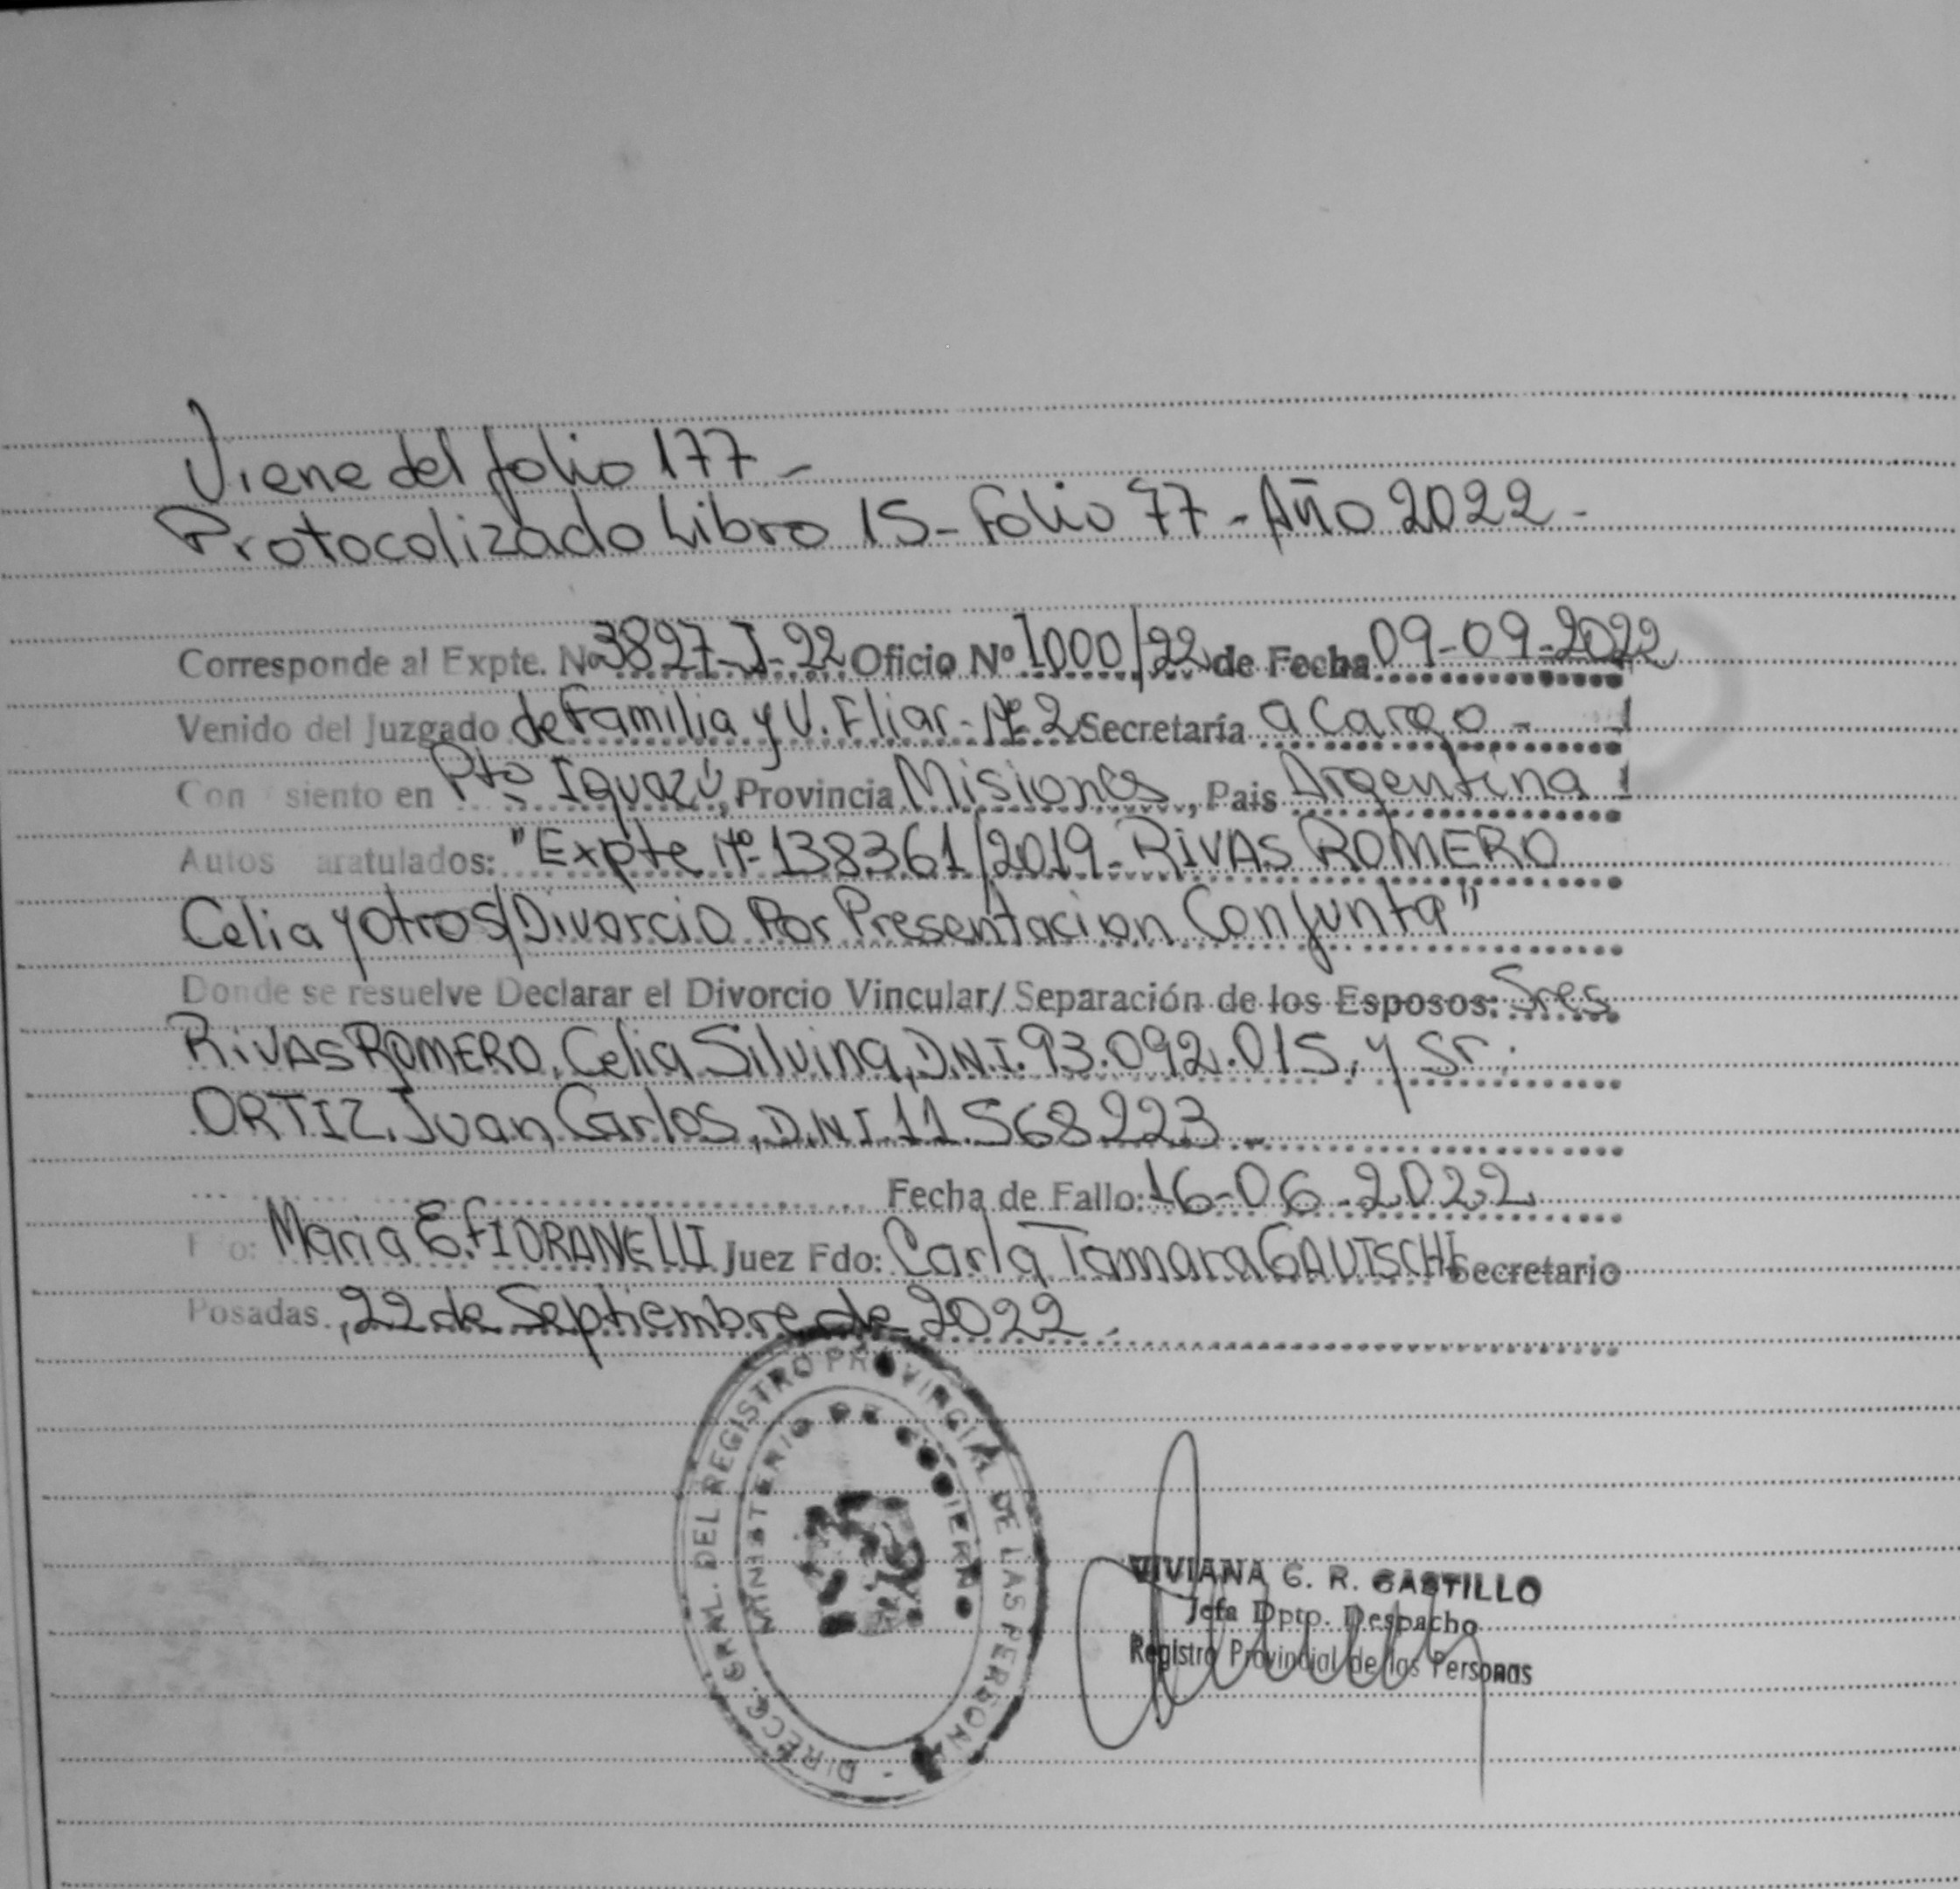 Viene del folio 177-
Protocolizado Libro 15- Folio 77- Año 2022-
Corresponde al Expte. Nº 3827-J-22 Oficio Nº 1000/22 de Fecha 09-09-2022
Venido del Juzgado de Familia y V. Fliar- Nº 2 Secretaría a Cargo-
Con siento en Pto Iguazú, Provincia Misiones, Pais Argentina
Autos aratulados: "Expte Nº 138361/2019- RIVAS ROMERO
Celia y otros/Divorcio Por Presentacion Conjunta"
Donde se resuelve Declarar el Divorcio Vincular/ Separación de los Esposos: Sres
RIVAS ROMERO, Celia Silvina, D.N.I. 93.092.015, y Sr.
ORTIZ, Juan Carlos, D.N.I 11.568223-
Fecha de Fallo: 16-06-2022
F o: Maria E. FIORANELLI Juez Fdo: Carla Tamara GAUTSCHI Secretario
Posadas, 22 de Septiembre de 2022.
DIRECC. GRAL. DEL REGISTRO PROVINCIAL DE LAS PERSONAS -
MINISTERIO DE GOBIERNO
VIVIANA G. R. CASTILLO
Jefa Dpto. Despacho
Registro Provincial de las Personas